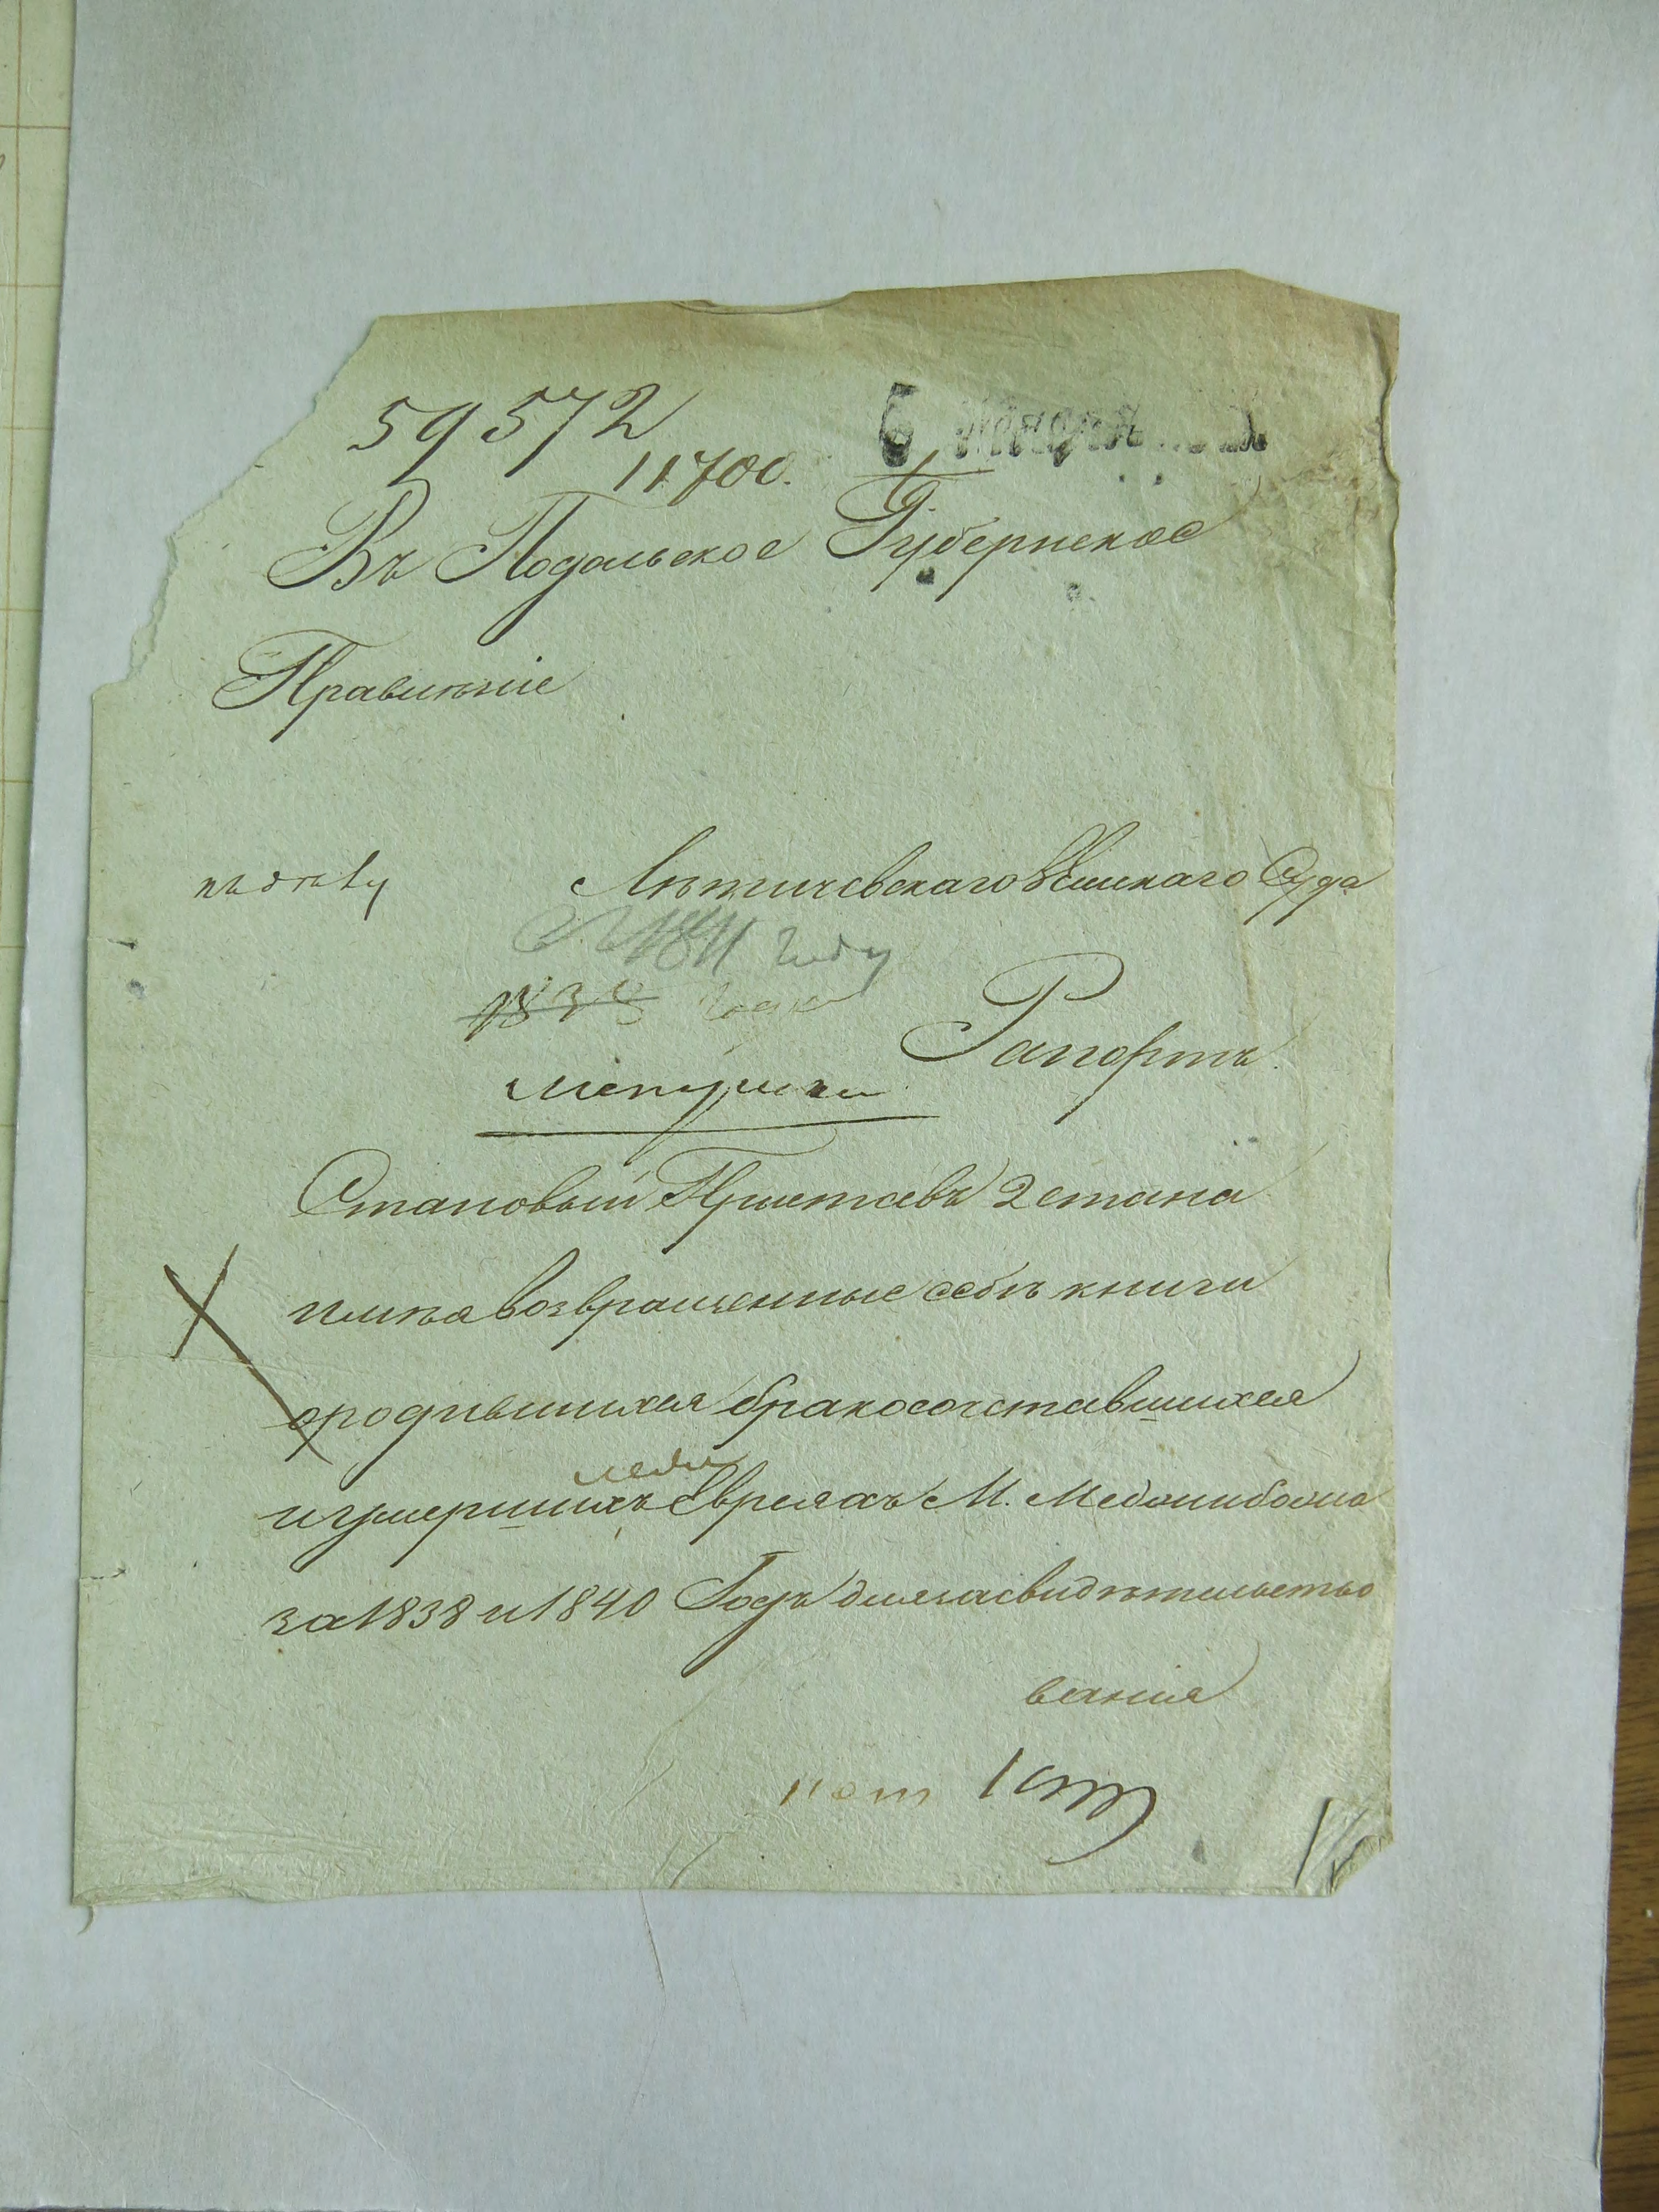 59572
6 Января
11700.
Въ Подольское Губернское
Правленіе
Лѣтичевскаго Земскаго Суда
1841 году
1838 года
Рапортъ.
Становый Приставъ 2 стана
возвращенные себѣ книги
ородившихся бракосочетавшихся
иумершихъ Евреяхъ М. Меджибожа
за 1838 и 1840 Годъ длязасвидѣтельство
ванія